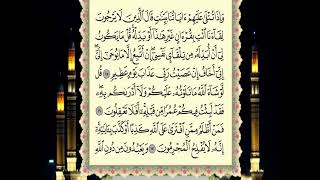 وَإِذَا تُتْلَىٰ عَلَيْهِمْ ءَايَاتُنَا بَيِّنَٰتٍ قَالَ ٱلَّذِينَ لَا يَرْجُونَ
لِقَآءَنَا ٱئْتِ بِقُرْءَانٍ غَيْرِ هَٰذَآ أَوْ بَدِّلْهُ قُلْ مَا يَكُونُ
لِىٓ أَنْ أُبَدِّلَهُۥ مِن تِلْقَآئِ نَفْسِىٓ إِنْ أَتَّبِعُ إِلَّا مَا يُوحَىٰٓ إِلَىَّ
إِنِّىٓ أَخَافُ إِنْ عَصَيْتُ رَبِّى عَذَابَ يَوْمٍ عَظِيمٍ ١٥ قُل
لَّوْ شَآءَ ٱللَّهُ مَا تَلَوْتُهُۥ عَلَيْكُمْ وَلَآ أَدْرَىٰكُم بِهِۦ
فَقَدْ لَبِثْتُ فِيكُمْ عُمُرًا مِّن قَبْلِهِۦٓ أَفَلَا تَعْقِلُونَ ١٦
فَمَنْ أَظْلَمُ مِمَّنِ ٱفْتَرَىٰ عَلَى ٱللَّهِ كَذِبًا أَوْ كَذَّبَ بِـَٔايَٰتِهِۦٓ
إِنَّهُۥ لَا يُفْلِحُ ٱلْمُجْرِمُونَ ١٧ وَيَعْبُدُونَ مِن دُونِ ٱللَّهِ